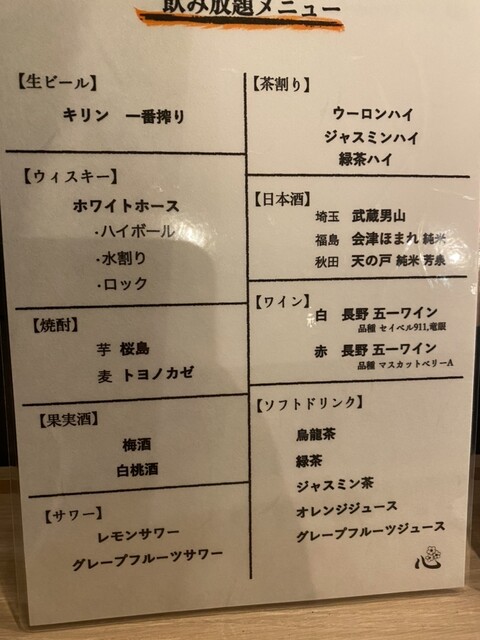 飲み放題メニュー
【生ビール】
キリン 一番搾り
【ウィスキー】
ホワイトホース
・ハイボール
・水割り
・ロック
【焼酎】
芋 桜島
麦 トヨノカゼ
【果実酒】
梅酒
白桃酒
【サワー】
レモンサワー
グレープフルーツサワー
【茶割り】
ウーロンハイ
ジャスミンハイ
緑茶ハイ
【日本酒】
埼玉 武蔵男山
福島 会津ほまれ 純米
秋田 天の戸 純米 芳泉
【ワイン】
白 長野 五一ワイン
品種 セイベル911,竜眼
赤 長野 五一ワイン
品種 マスカットベリーA
【ソフトドリンク】
烏龍茶
緑茶
ジャスミン茶
オレンジジュース
グレープフルーツジュース
心